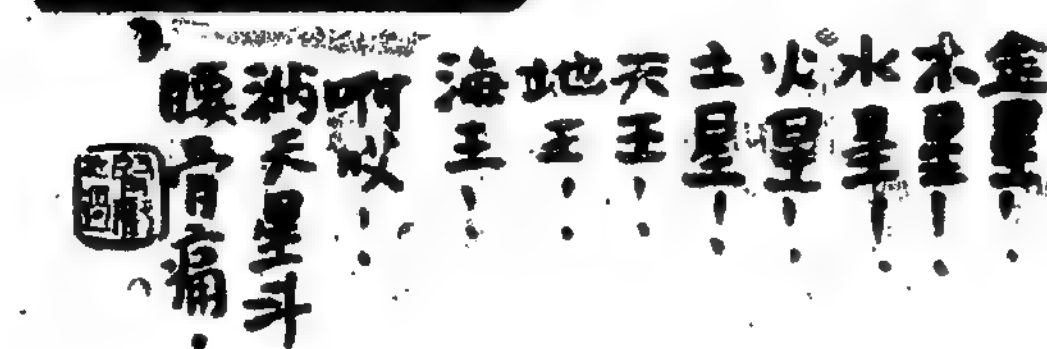 金星！
木星！
水星！
火星！
土星！
天王！
地王！
海王！
啊哎！
满天星斗
腰肯痛！